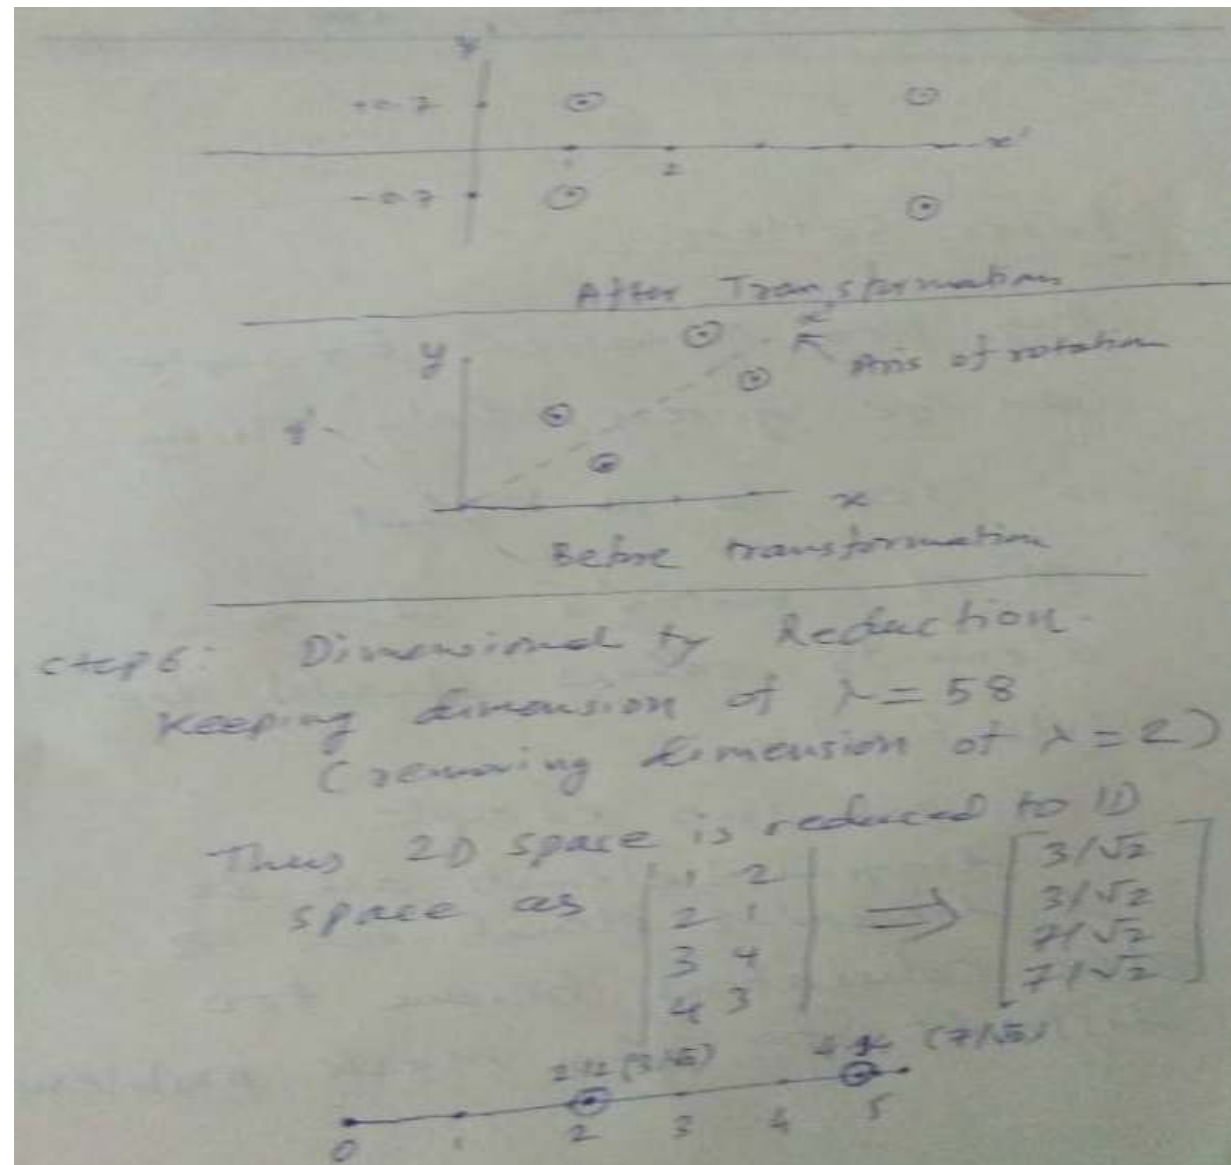 y'
+0.7
1 2 x'
-0.7
After Transformation
x'
y Axis of rotation
x
Before transformation
Step 6: Dimensionality Reduction.
Keeping dimension of λ = 58
(removing dimension of λ = 2)
Thus 2D space is reduced to 1D
space as
1 2 3/√2
2 1 ⇒ 3/√2
3 4 7/√2
4 3 7/√2
2.12 (3/√2) (7/√2)
0 1 2 3 4 5